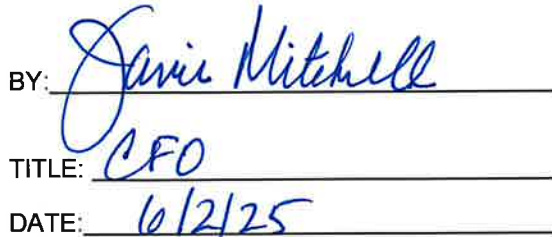 BY: Mitchell
TITLE: CFO
DATE: 6/2/25